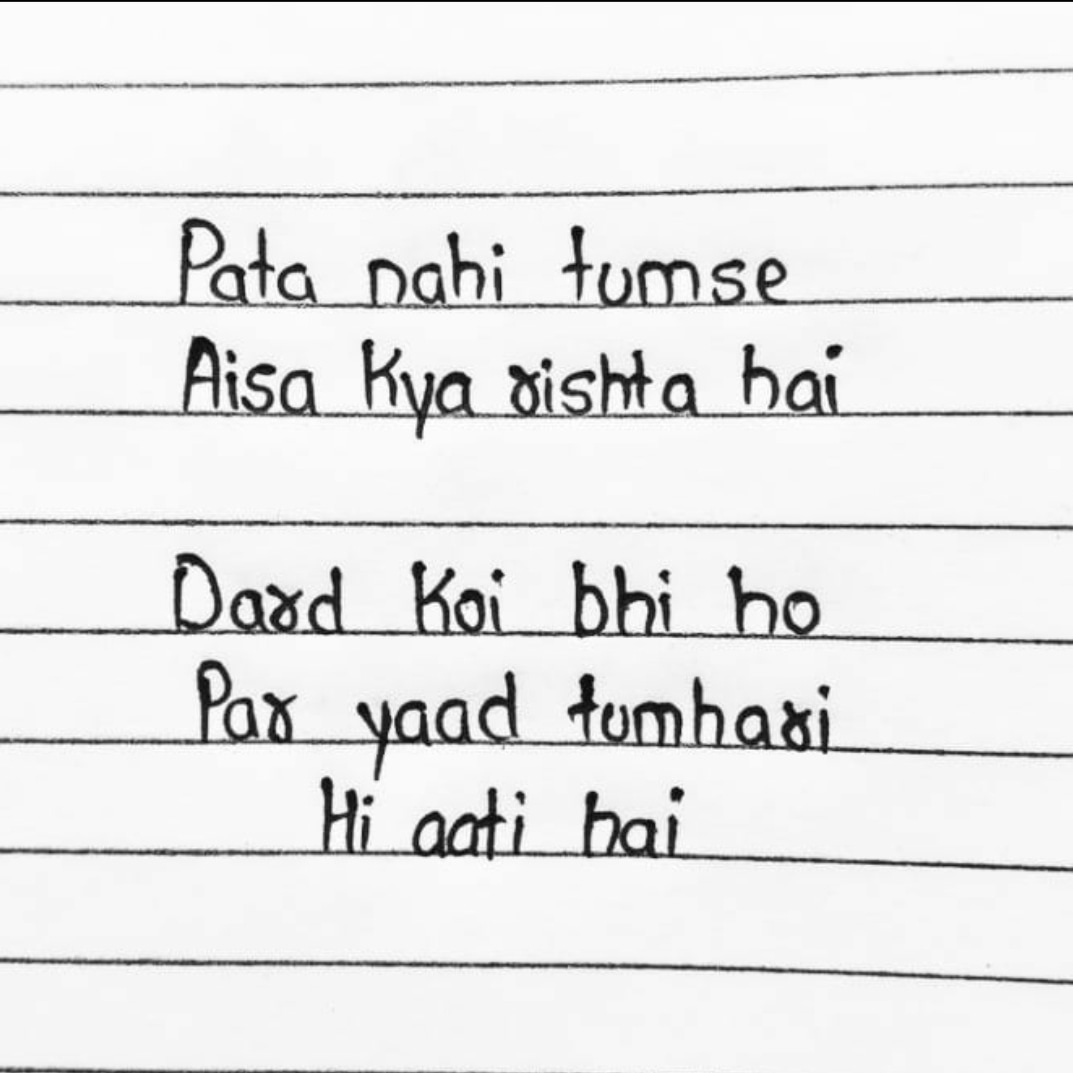 Pata nahi tumse
Aisa Kya rishta hai
Dard Koi bhi ho
Par yaad tumhari
Hi aati hai